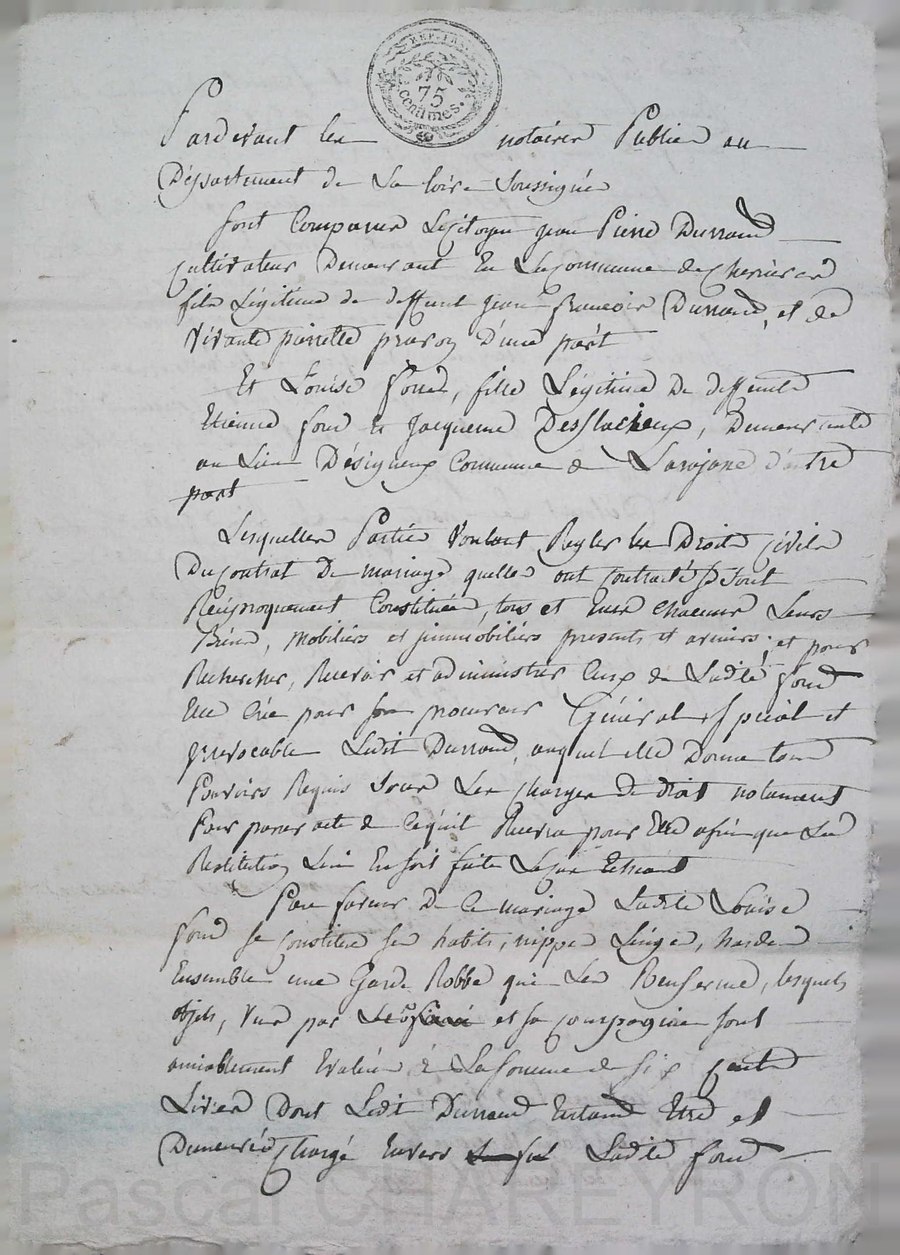 REP. FRA.
75
centimes.
Pardevant les notaires Publics au
Département de La loire Soussignés
Sont Comparus Le Citoyen jean Pierre Durrand
Cultivateur Demeurant En La Commune de Cherier
fils Légitime de deffunt jean francois Durrand, et de
Vivante pierrette d'une part
Et Louise fond, fille Légitime De deffunts
Etienne fond et Jacqueme Desflacheux, Demeurante
au Lieu Désigneux Commune de d'autre
part
Lesquelles Parties Voulant Regler les Droits Civils
Du Contrat De mariage quelles ont Contracté Se sont
Réciproquement Constitués, tous et uns chacuns Leurs
Biens, mobiliers et jmmobiliers presents et avenirs, et pour
Rechercher, Recevoir et administrer Ceux de Ladte fond
Elle Crée pour son procureur Général et Special et
jrrevocable Ledit Durrand, auquel elle Donne tous
Pouvoirs Requis Sous Les Charges de droit notament
Pour passer acte de Cequil Recevra pour Elle afin que La
Restitution Luis En soit faite Le cas
Pare faveur De Ce mariage Ladite Louise
fond se Constitue ses habits, nippes Linge, hardes
Ensemble une Garde Robbe qui Les Renferme, lesquels
objets, Vus par et sa Compagnie Sont
amiablement Evalués à La Somme de Six Cents
Livres Dont Ledit Durrand Entend Etre et
Demeurer Chargé Envers Ladte fond
Pascal CHAREYRON